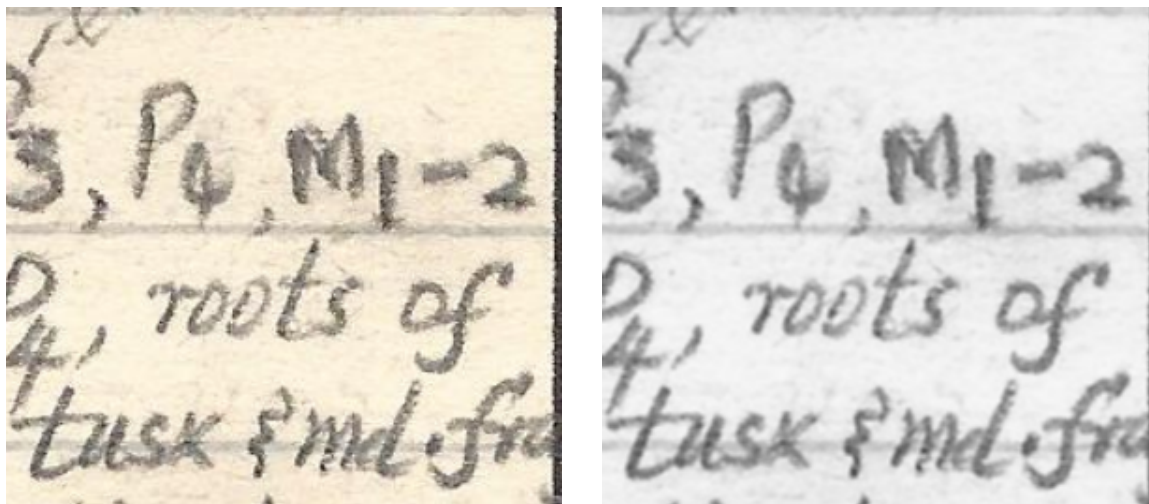 3, P4, M1-2
P4, roots of
tusk & md. fra
3, P4, M1-2
P4, roots of
tusk & md. fra